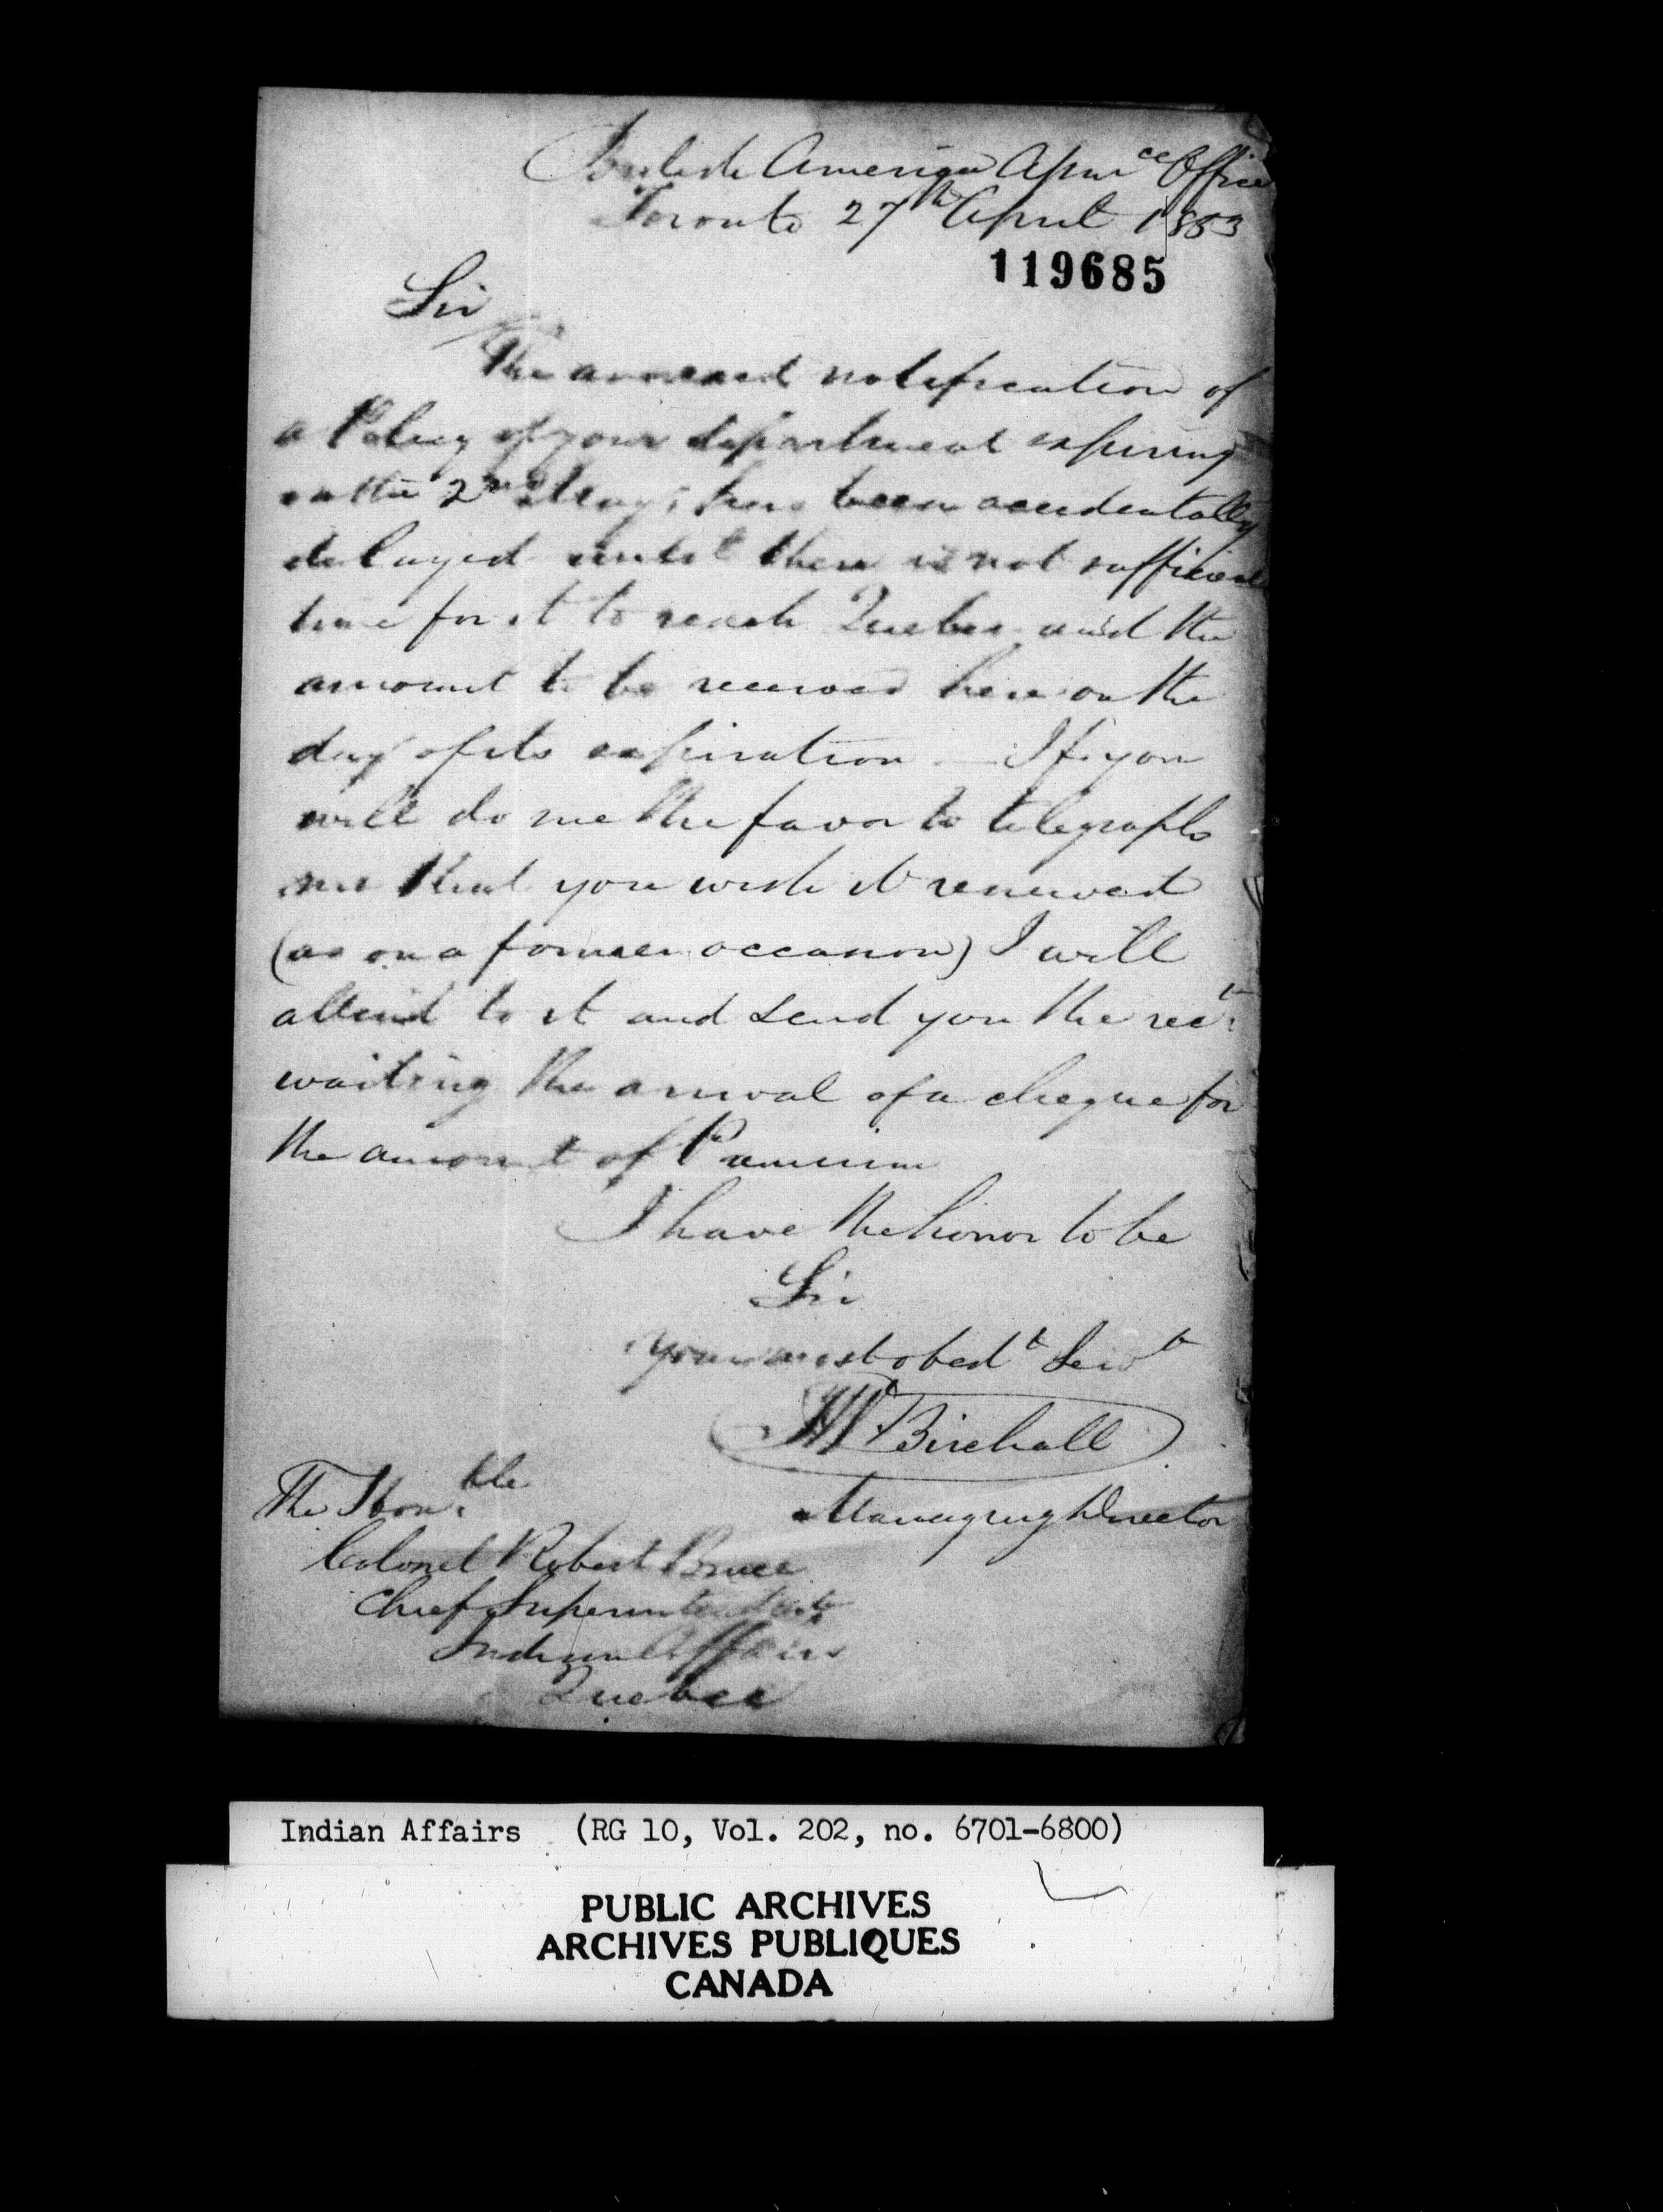 British America Assur ce Office
Toronto 27th April 1853
119685
Sir
The annexed notification of
a Policy of your department expiring
on the 2nd May, has been accidentally
delayed until there is not sufficient
time for it to reach Quebec and the
amount to be received here on the
day of its expiration — If you
will do me the favor to telegraph
me that you wish it renewed
(as on a former occasion) I will
attend to it and send you the rect.
waiting the arrival of a cheque for
the amount of Premium
I have the honor to be
Sir
Your most obedt Servt
Birchall
Managing Director
The Honble
Colonel Robert Bruce
Chief Superintendent
Indian Affairs
Quebec
Indian Affairs (RG 10, Vol. 202, no. 6701-6800)
PUBLIC ARCHIVES
ARCHIVES PUBLIQUES
CANADA